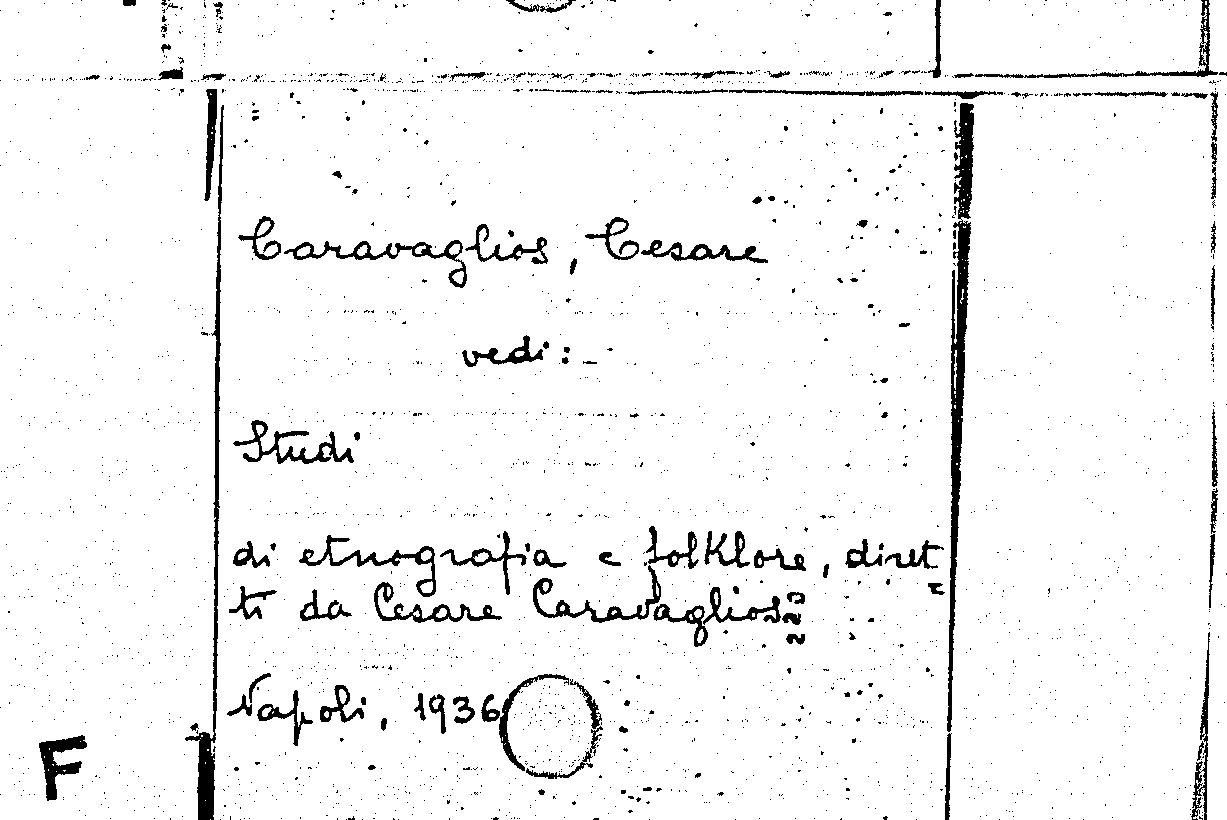 Caravaglios, Cesare
vedi:
Studi
di etnografia e folklore, diret=
ti da Cesare Caravaglios
Napoli, 1936
F